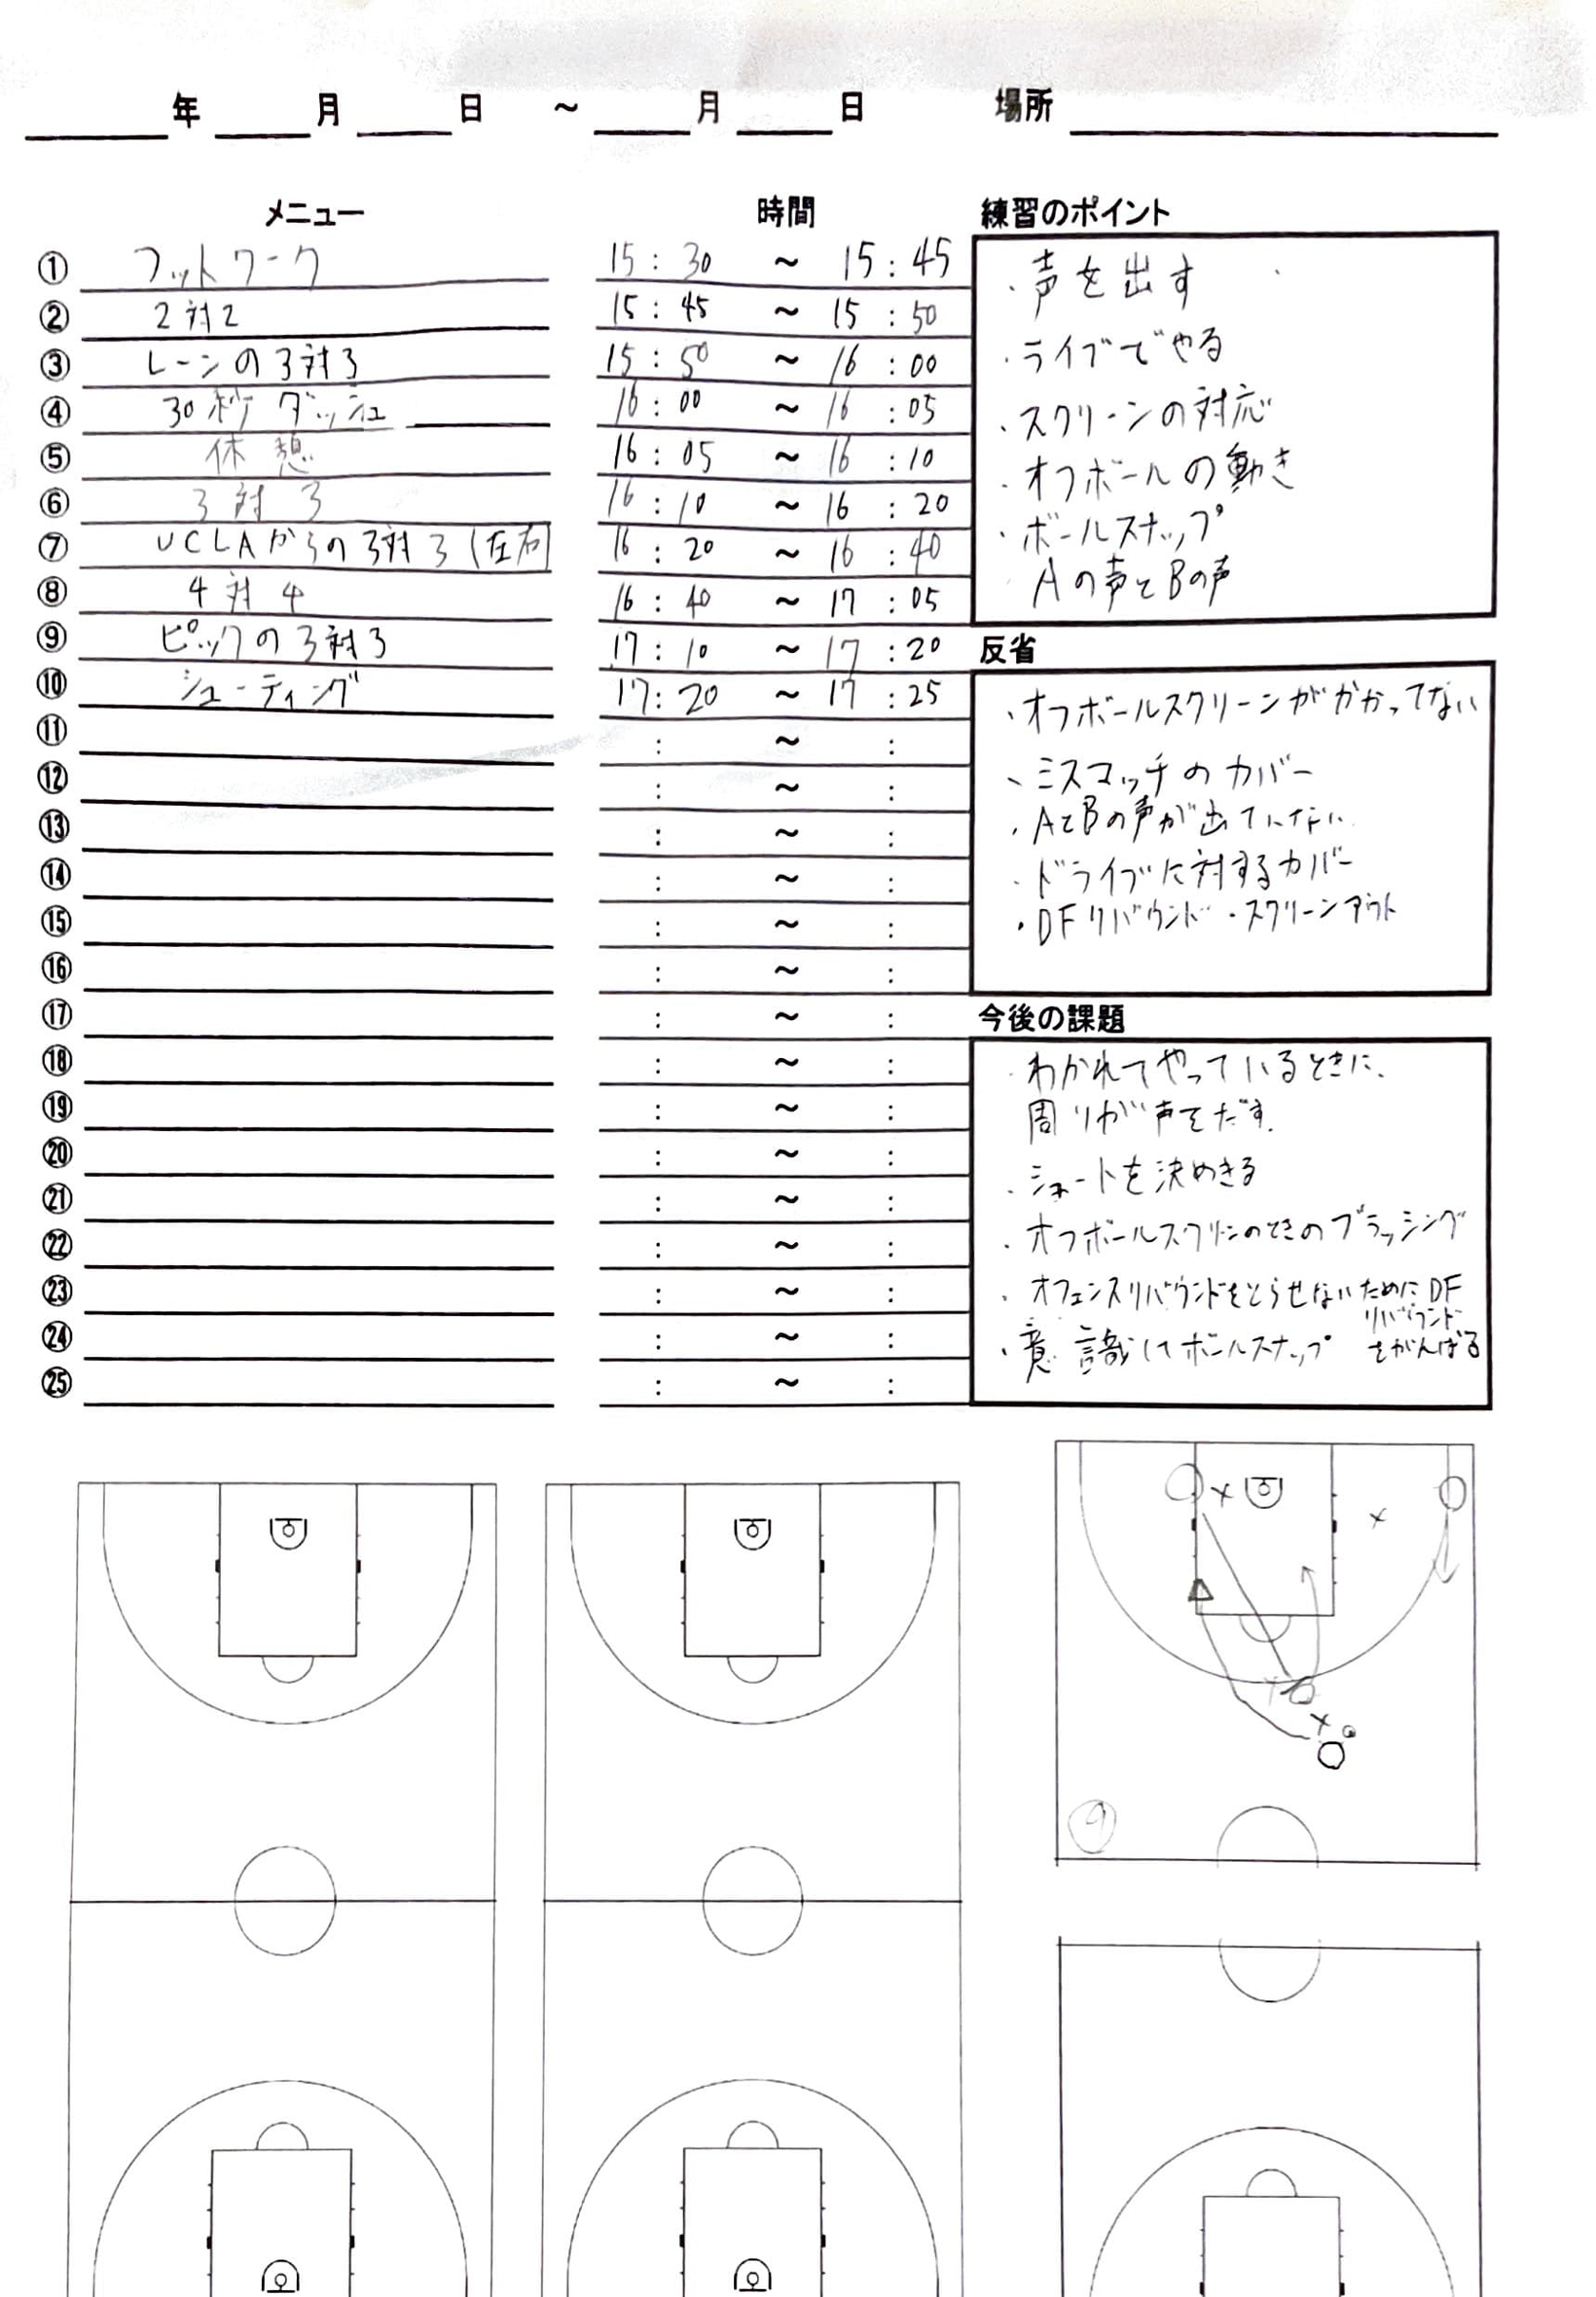 年 月 日 ～ 月 日 場所
メニュー 時間
① フットワーク 15:30 ～ 15:45
② 2対2 15:45 ～ 15:50
③ レーンの3対3 15:50 ～ 16:00
④ 30秒ダッシュ 16:00 ～ 16:05
⑤ 休憩 16:05 ～ 16:10
⑥ 3対3 16:10 ～ 16:20
⑦ UCLAからの3対3(左右) 16:20 ～ 16:40
⑧ 4対4 16:40 ～ 17:05
⑨ ピックの3対3 17:10 ～ 17:20
⑩ シューティング 17:20 ～ 17:25
⑪ : ～ :
⑫ : ～ :
⑬ : ～ :
⑭ : ～ :
⑮ : ～ :
⑯ : ～ :
⑰ : ～ :
⑱ : ～ :
⑲ : ～ :
⑳ : ～ :
㉑ : ～ :
㉒ : ～ :
㉓ : ～ :
㉔ : ～ :
㉕ : ～ :
練習のポイント
・声を出す
・ライブでやる
・スクリーンの対応
・オフボールの動き
・ボールスナップ
Aの声とBの声
反省
・オフボールスクリーンがかかってない
・ミスマッチのカバー
・AとBの声が出ていない
・ドライブに対するカバー
・DFリバウンド・スクリーンアウト
今後の課題
・わかれてやっているときに、
周りが声をだす。
・シュートを決めきる
・オフボールスクリーンのときのブラッシング
・オフェンスリバウンドをとらせないためにDF
リバウンド
をがんばる
・意識してボールスナップ
⑨